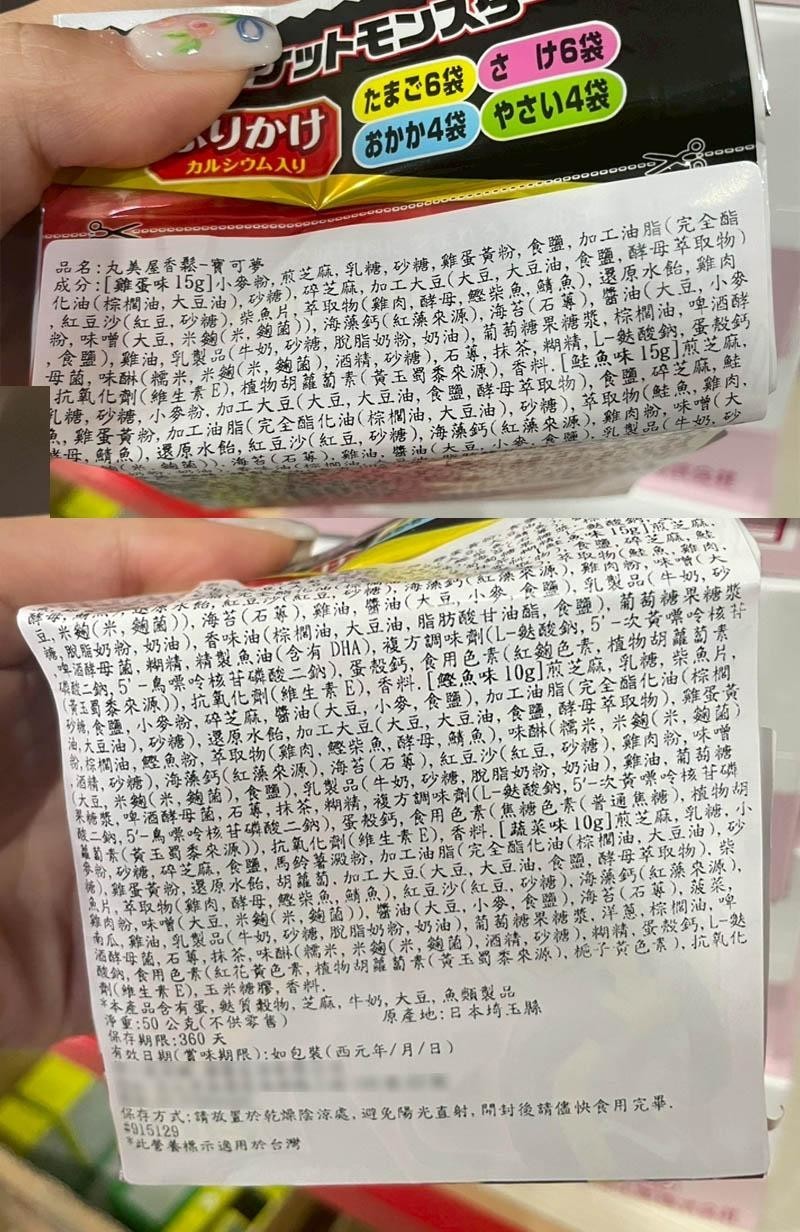 ケットモンスタ
たまご6袋
さけ6袋
おかか4袋
やさい4袋
りかけ
カルシウム入り
品名:丸美屋香鬆-寶可夢
成分:[雞蛋味 15g]小麥粉,煎芝麻,乳糖,砂糖,雞蛋黃粉,食鹽,加工油脂(完全酯
化油(棕櫚油,大豆油),砂糖),碎芝麻,加工大豆(大豆,大豆油,食鹽,酵母萃取物)
,紅豆沙(紅豆,砂糖),柴魚片,萃取物(雞肉,酵母,鰹柴魚,鯖魚),還原水飴,雞肉
粉,味噌(大豆,米麴(米,麴菌)),海藻鈣(紅藻來源),海苔(石蓴),醬油(大豆,小麥
,食鹽),雞油,乳製品(牛奶,砂糖,脫脂奶粉,奶油),葡萄糖果糖漿,棕櫚油,啤酒酵
母菌,味醂(糯米,米麴(米,麴菌),酒精,砂糖),石蓴,抹茶,糊精,L-麩酸鈉,蛋殼鈣
,抗氧化劑(維生素E),植物胡蘿蔔素(黃玉蜀黍來源),香料.[鮭魚味 15g]煎芝麻,
乳糖,砂糖,小麥粉,加工大豆(大豆,大豆油,食鹽,酵母萃取物),食鹽,碎芝麻,鮭
魚,雞蛋黃粉,加工油脂(完全酯化油(棕櫚油,大豆油),砂糖),萃取物(鮭魚,雞肉,
酵母,鯖魚),還原水飴,紅豆沙(紅豆,砂糖),海藻鈣(紅藻來源),雞肉粉,味噌(大
豆,米麴(米,麴菌)),海苔(石蓴),雞油,醬油(大豆,小麥,食鹽),乳製品(牛奶,砂
糖,脫脂奶粉,奶油),香味油(棕櫚油,大豆油,脂肪酸甘油酯,食鹽),葡萄糖果糖漿
,啤酒酵母菌,糊精,精製魚油(含有 DHA),複方調味劑(L-麩酸鈉,5'-次黃嘌呤核苷
磷酸二鈉,5'-鳥嘌呤核苷磷酸二鈉),蛋殼鈣,食用色素(紅麴色素,植物胡蘿蔔素
(黃玉蜀黍來源)),抗氧化劑(維生素E),香料.[鰹魚味 10g]煎芝麻,乳糖,柴魚片,
砂糖,食鹽,小麥粉,碎芝麻,醬油(大豆,小麥,食鹽),加工油脂(完全酯化油(棕櫚
油,大豆油),砂糖),還原水飴,加工大豆(大豆,大豆油,食鹽,酵母萃取物),雞蛋黃
粉,棕櫚油,鰹魚粉,萃取物(雞肉,鰹柴魚,酵母,鯖魚),味醂(糯米,米麴(米,麴菌)
,酒精,砂糖),海藻鈣(紅藻來源),海苔(石蓴),紅豆沙(紅豆,砂糖),雞肉粉,味噌
(大豆,米麴(米,麴菌),食鹽),乳製品(牛奶,砂糖,脫脂奶粉,奶油),雞油,葡萄糖
果糖漿,啤酒酵母菌,石蓴,抹茶,糊精,複方調味劑(L-麩酸鈉,5'-次黃嘌呤核苷磷
酸二鈉,5'-鳥嘌呤核苷磷酸二鈉),蛋殼鈣,食用色素(焦糖色素(普通焦糖),植物胡
蘿蔔素(黃玉蜀黍來源)),抗氧化劑(維生素E),香料.[蔬菜味 10g]煎芝麻,乳糖,小
麥粉,砂糖,碎芝麻,食鹽,馬鈴薯澱粉,加工油脂(完全酯化油(棕櫚油,大豆油),砂
糖),雞蛋黃粉,還原水飴,胡蘿蔔,加工大豆(大豆,大豆油,食鹽,酵母萃取物),柴
魚片,萃取物(雞肉,酵母,鰹柴魚,鯖魚),紅豆沙(紅豆,砂糖),海藻鈣(紅藻來源),
雞肉粉,味噌(大豆,米麴(米,麴菌)),醬油(大豆,小麥,食鹽),海苔(石蓴),菠菜,
南瓜,雞油,乳製品(牛奶,砂糖,脫脂奶粉,奶油),葡萄糖果糖漿,洋蔥,棕櫚油,啤
酒酵母菌,石蓴,抹茶,味醂(糯米,米麴(米,麴菌),酒精,砂糖),糊精,蛋殼鈣,L-麩
酸鈉,食用色素(紅花黃色素,植物胡蘿蔔素(黃玉蜀黍來源),梔子黃色素),抗氧化
劑(維生素E),玉米糖膠,香料.
*本產品含有蛋,麩質穀物,芝麻,牛奶,大豆,魚類製品
淨重:50 公克(不供零售) 原產地:日本埼玉縣
保存期限:360 天
有效日期(賞味期限):如包裝(西元年/月/日)
保存方式:請放置於乾燥陰涼處,避免陽光直射,開封後請儘快食用完畢.
#915129
*此營養標示適用於台灣